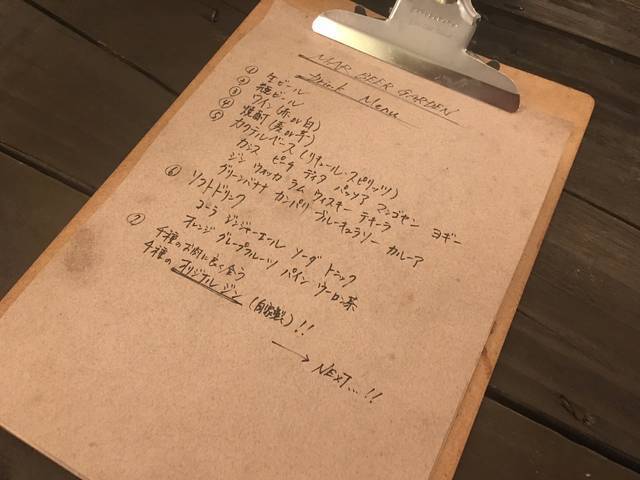 BEER GARDEN
Drink Menu
① 生ビール
② 瓶ビール
③ ワイン (赤or白)
④ 焼酎 (麦or芋)
⑤ カクテルベース (リキュール・スピリッツ)
カシス ピーチ ディタ パッソア マンゴヤン ヨギー
ジン ウォッカ ラム ウィスキー テキーラ
グリーンバナナ カンパリ ブルーキュラソー カルーア
⑥ ソフトドリンク
コーラ ジンジャーエール ソーダ トニック
オレンジ グレープフルーツ パイン ウーロン茶
⑦ 4種のお肉に良く合う
4種の オリジナルジン (自家製) !!
→ NEXT...!!